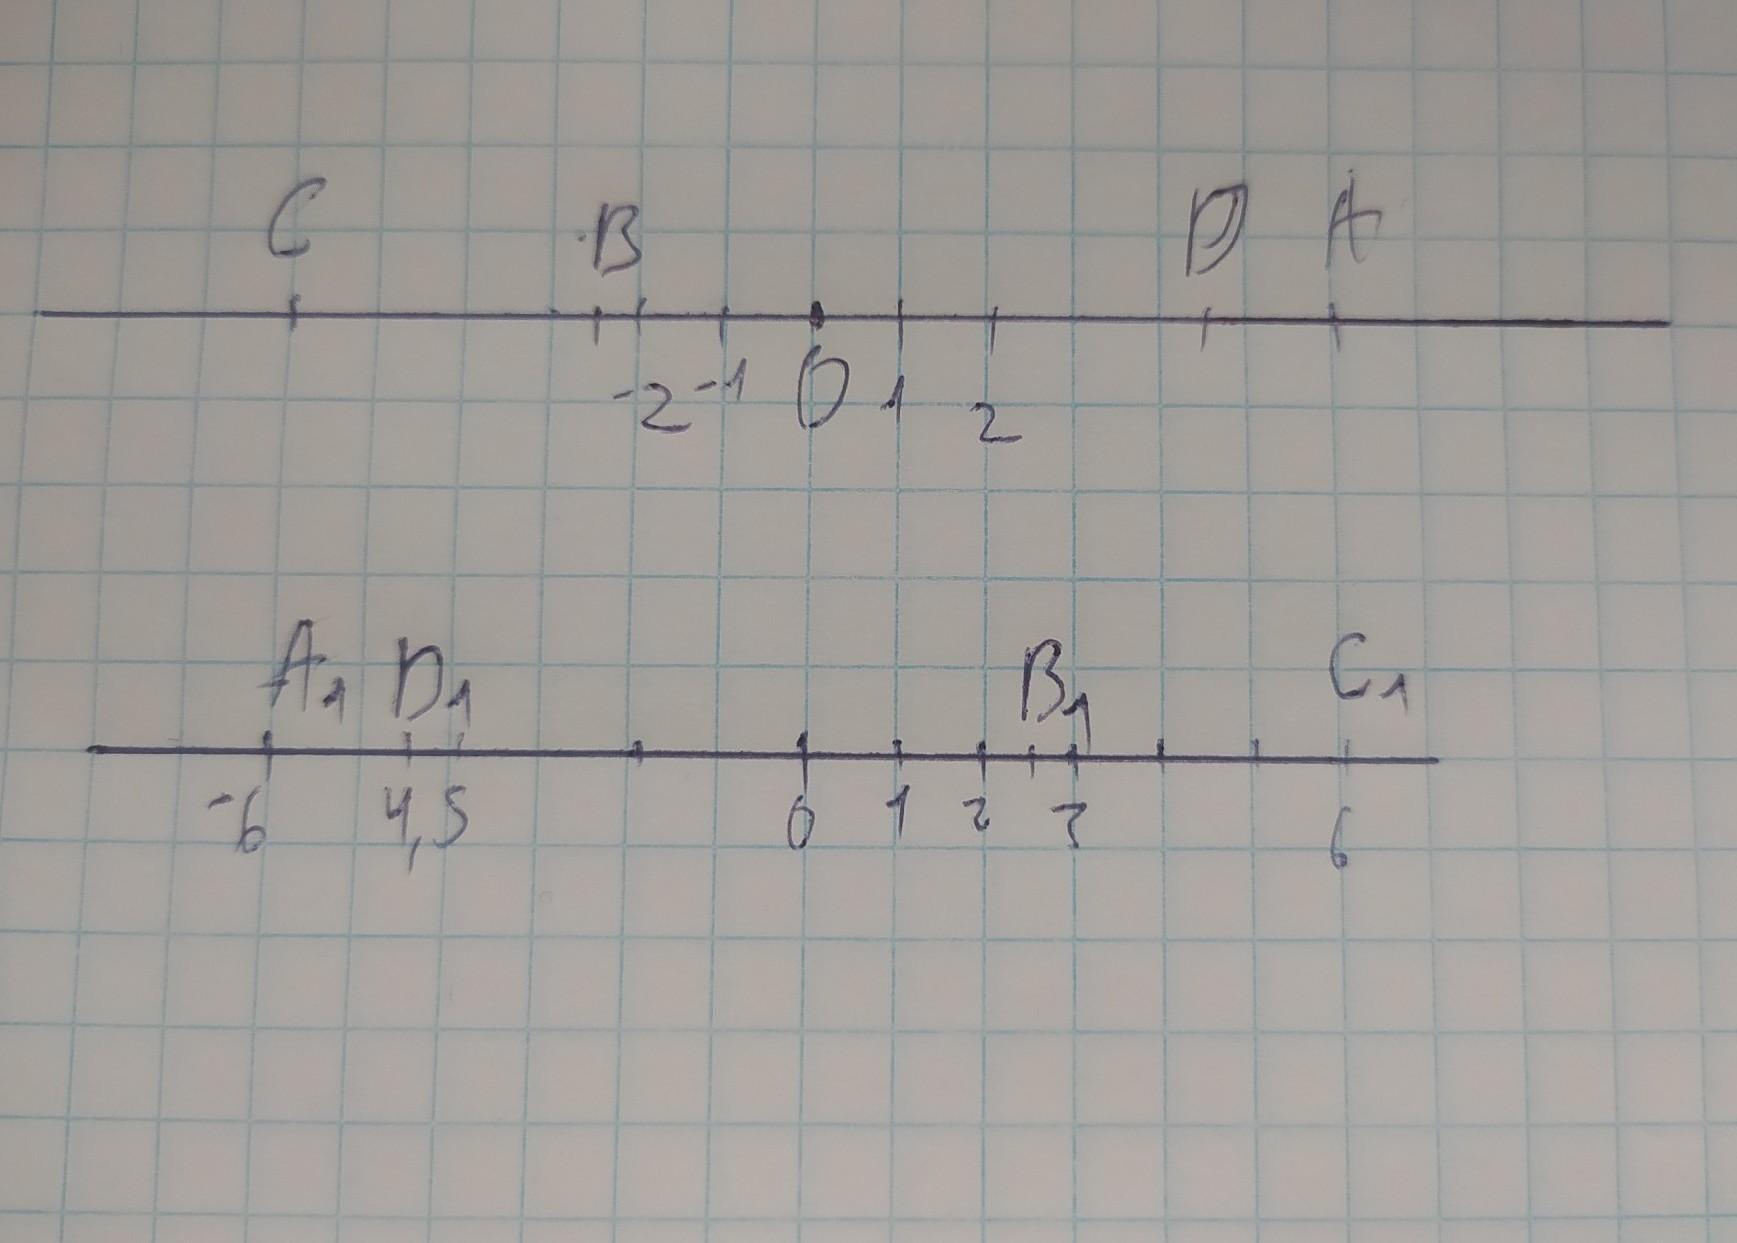 C B D A
-2 -1 0 1 2
A₁ D₁ B₁ C₁
-6 4,5 0 1 2 3 6